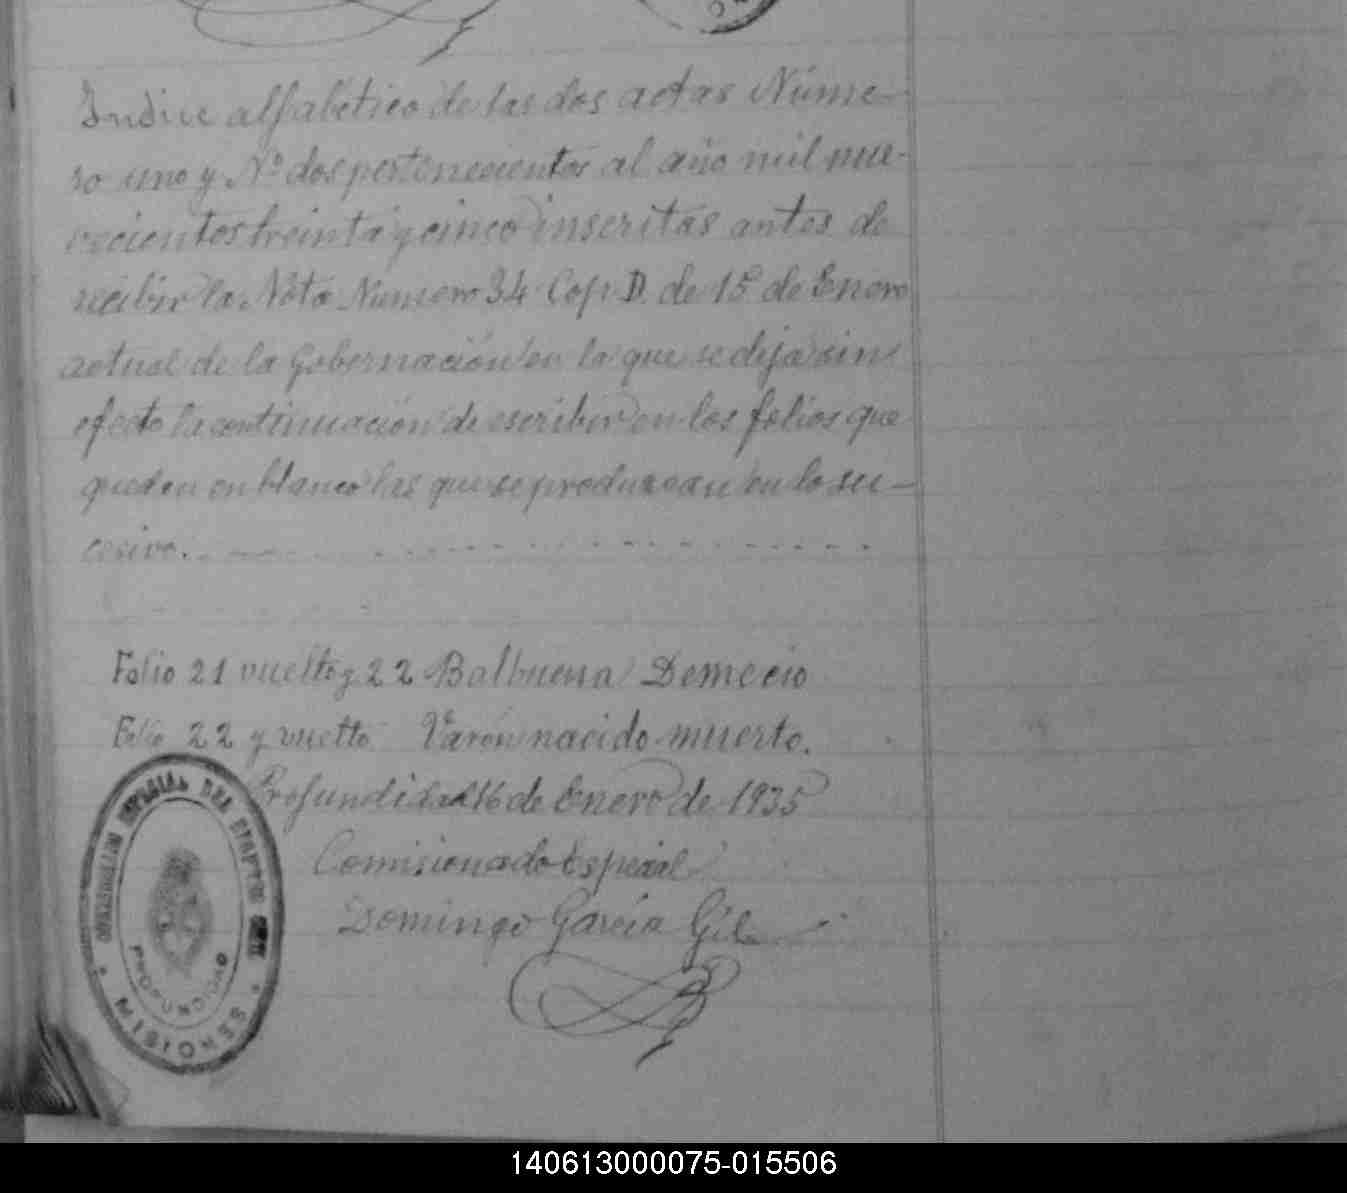 Indice alfabético de las dos actas Núme-
ro uno y Nº dos pertenecientes al año mil nue-
vecientos treinta y cinco inscritas antes de
recibir la Nota Numero 34 Cop. D. de 15 de Enero
actual de la Gobernación en la que se deja sin
efecto la continuación de escribir en los folios que
queden en blanco las que se produzcan en lo su-
cesivo.
Folio 21 vuelto y 22 Balbuena Demecio
Folio 22 y vuelto Varón nacido muerto.
Profundidad 16 de Enero de 1935
Comisionado Especial
Domingo García Gil
PROFUNDIDAD
MISIONES
140613000075-015506